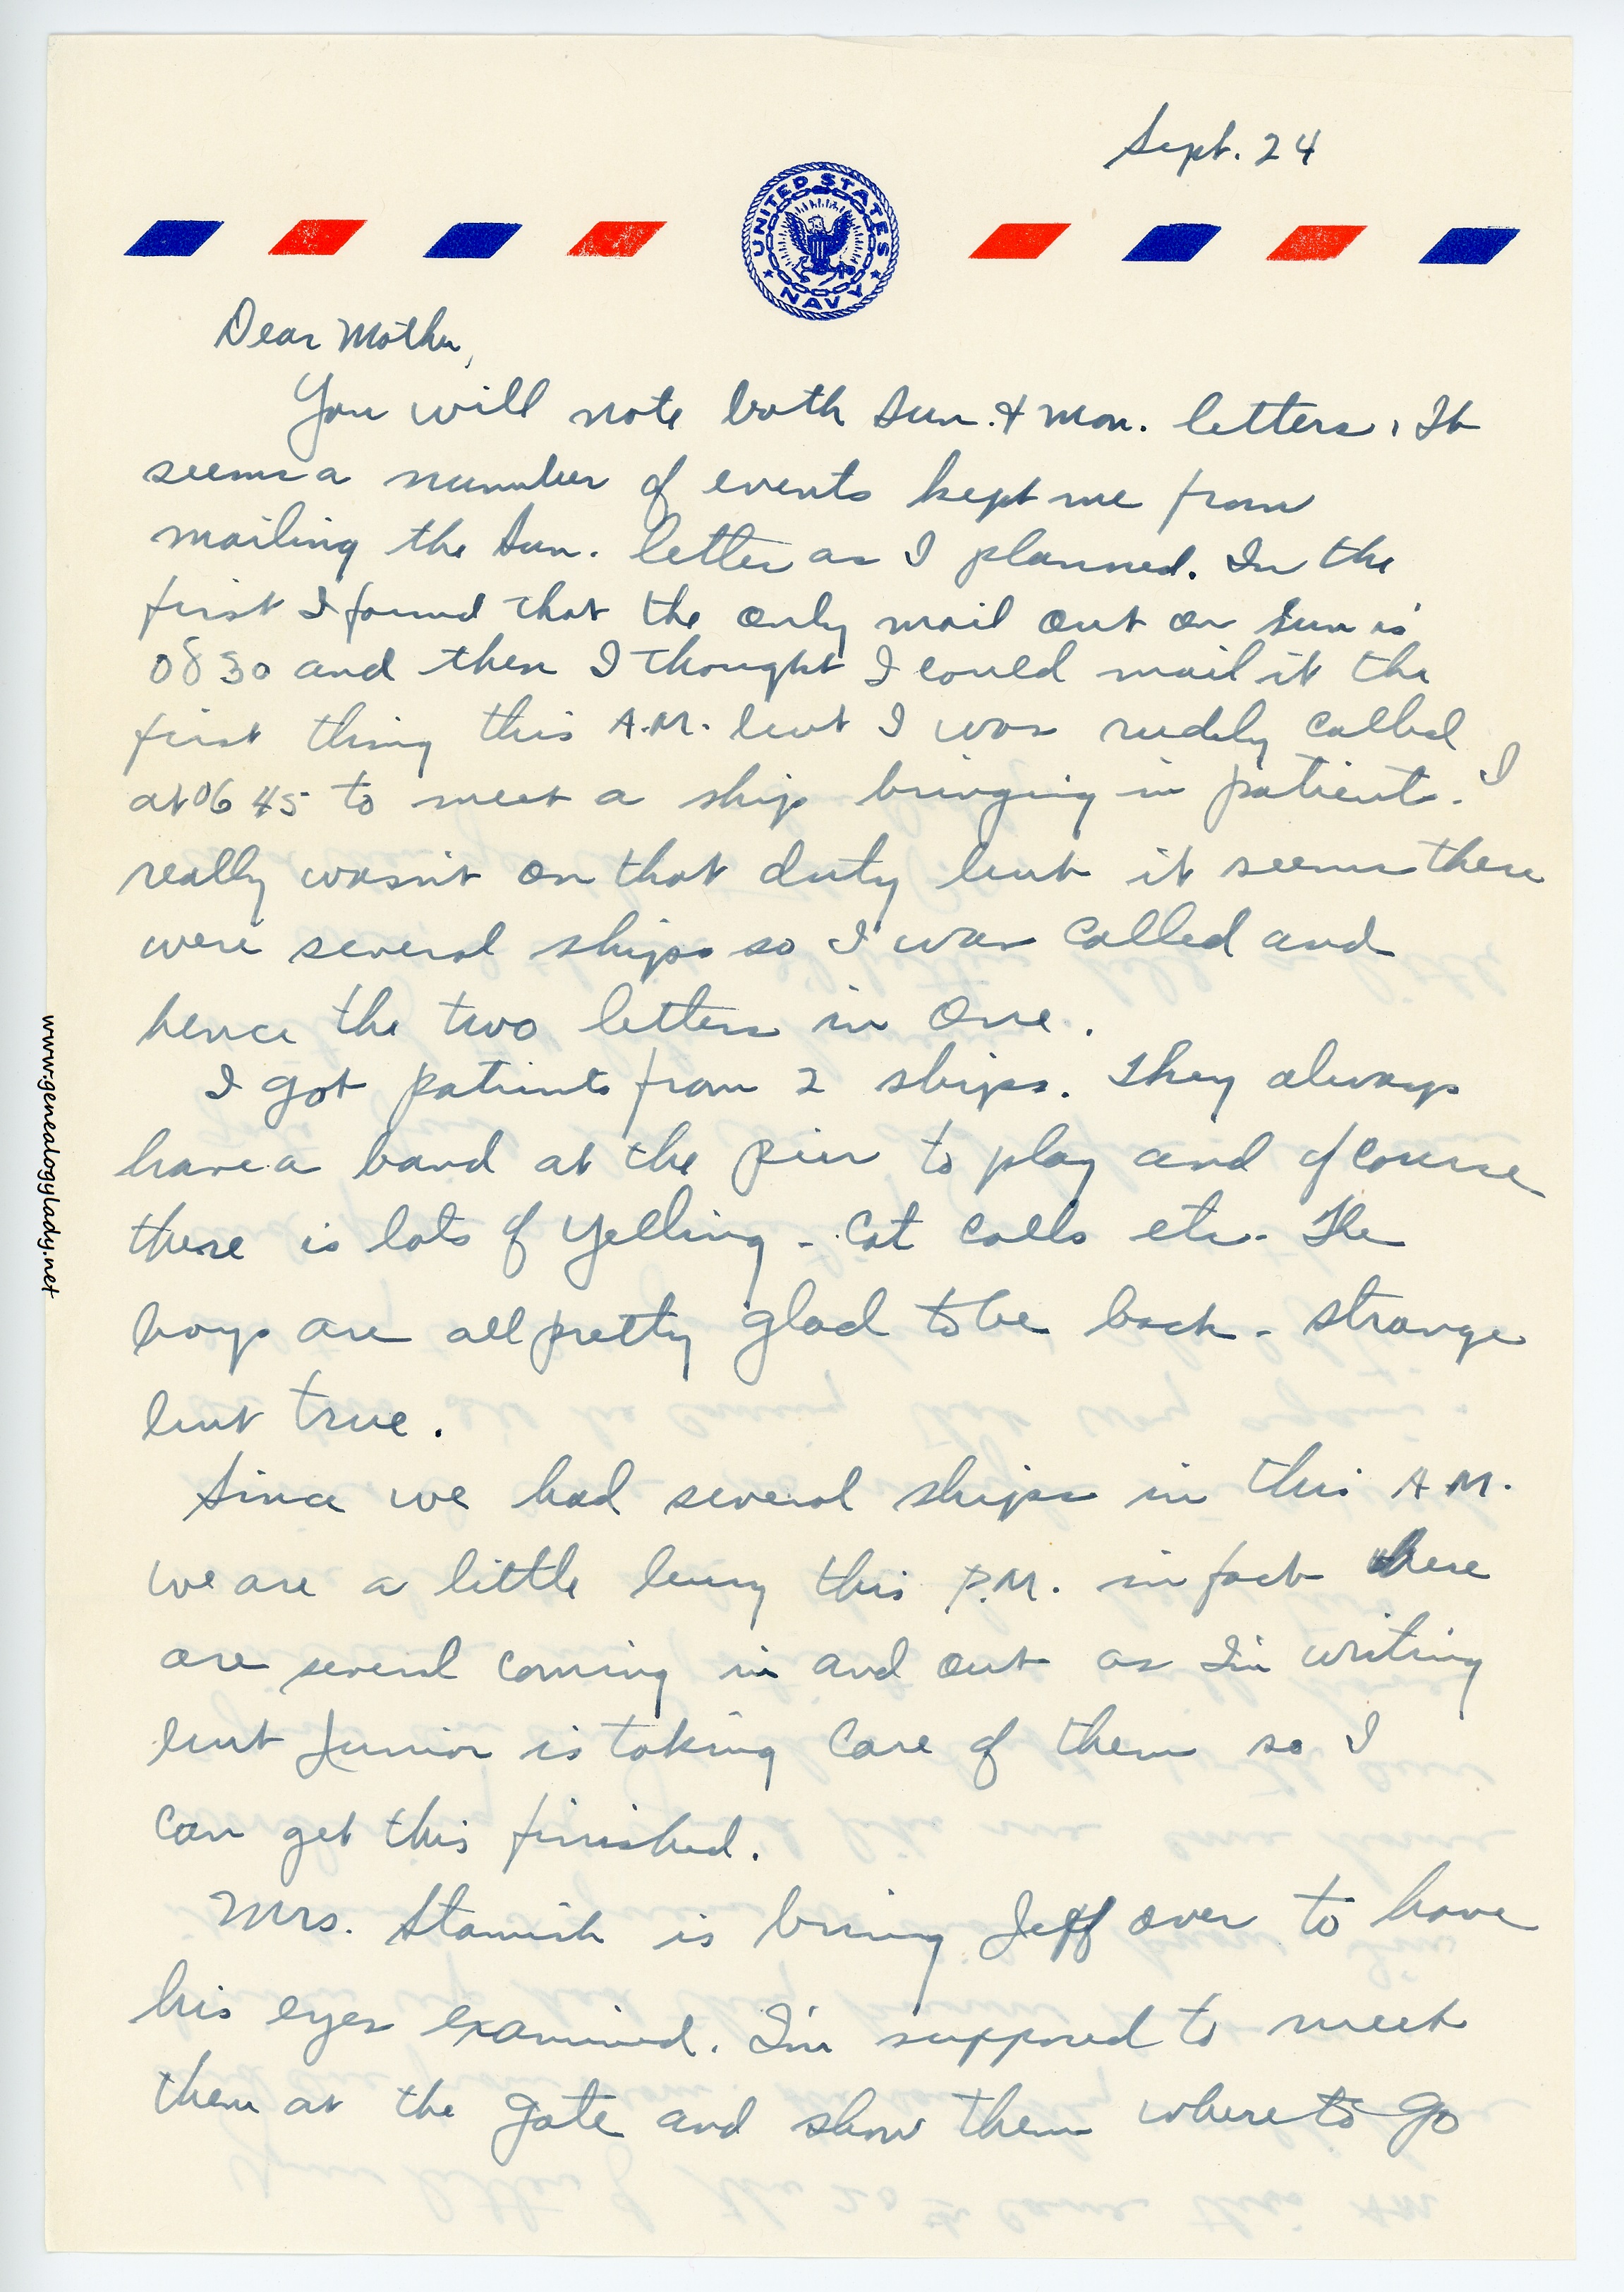 Sept. 24
UNITED STATES NAVY
Dear Mother,
You will note both Sun. & Mon. letters. It
seems a number of events kept me from
mailing the Sun. letter as I planned. In the
first I found that the only mail out on Sun is
0830 and then I thought I could mail it the
first thing this A.M. but I was rudely called
at 0645 to meet a ship bringing in patients. I
really wasn't on that duty but it seems there
were several ships so I was called and
hence the two letters in one.
I got patients from 2 ships. They always
have a band at the pier to play and of course
there is lots of yelling - cat calls etc. The
boys are all pretty glad to be back - strange
but true.
Since we had several ships in this A.M.
we are a little busy this P.M. in fact there
are several coming in and out as I'm writing
but Junior is taking care of them so I
can get this finished.
Mrs. Stamish is bring Jeff over to have
his eyes examined. I'm supposed to meet
them at the gate and show them where to go
www.genealogylady.net